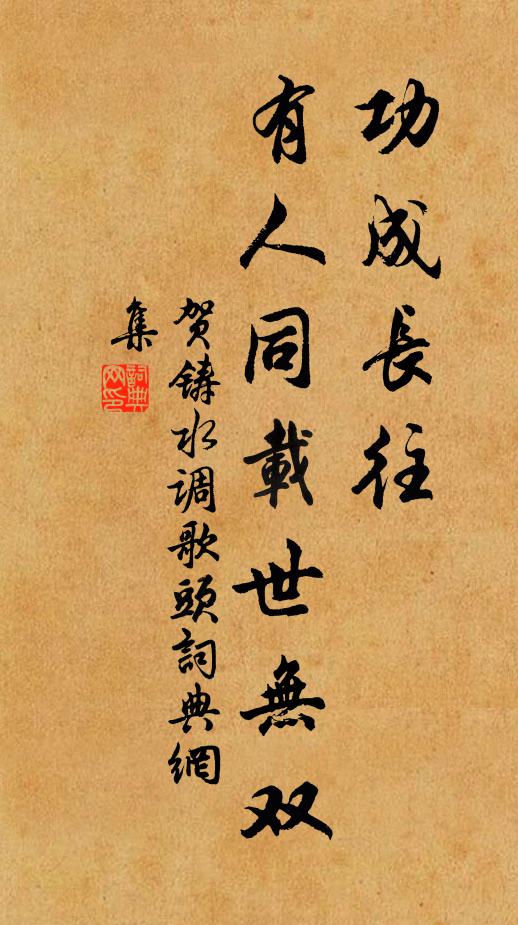 功成長往
有人同載世無双
贺鑄水调歌頭詞典網
集
詞典網印